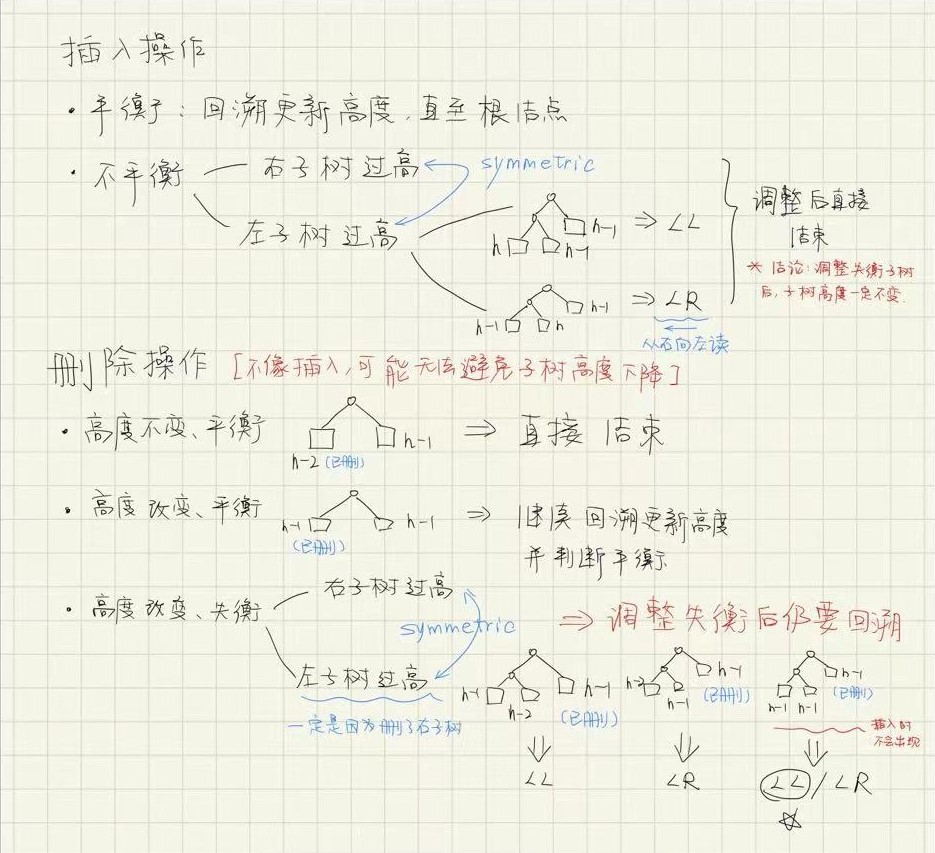 插入操作
· 平衡:回溯更新高度,直至根结点
· 不平衡 右子树过高 symmetric
左子树过高
h h-1 h-1 ⇒ LL
h-1 h h-1 ⇒ LR
从右向左读
调整后直接
结束
* 结论:调整失衡子树
后,子树高度一定不变.
删除操作 [不像插入,可能无法避免子树高度下降]
· 高度不变、平衡 h-2 (已删) h-1 ⇒ 直接结束
· 高度改变、平衡 h-1 (已删) h-1 ⇒ 继续回溯更新高度
并判断平衡
· 高度改变、失衡 右子树过高
symmetric ⇒ 调整失衡后仍要回溯
左子树过高
一定是因为删了右子树
h-1 h-2 h-1 (已删)
LL
h-2 h-1 h-1 (已删)
LR
h-1 h-1 h-1 (已删)
插入时
不会出现
LL / LR